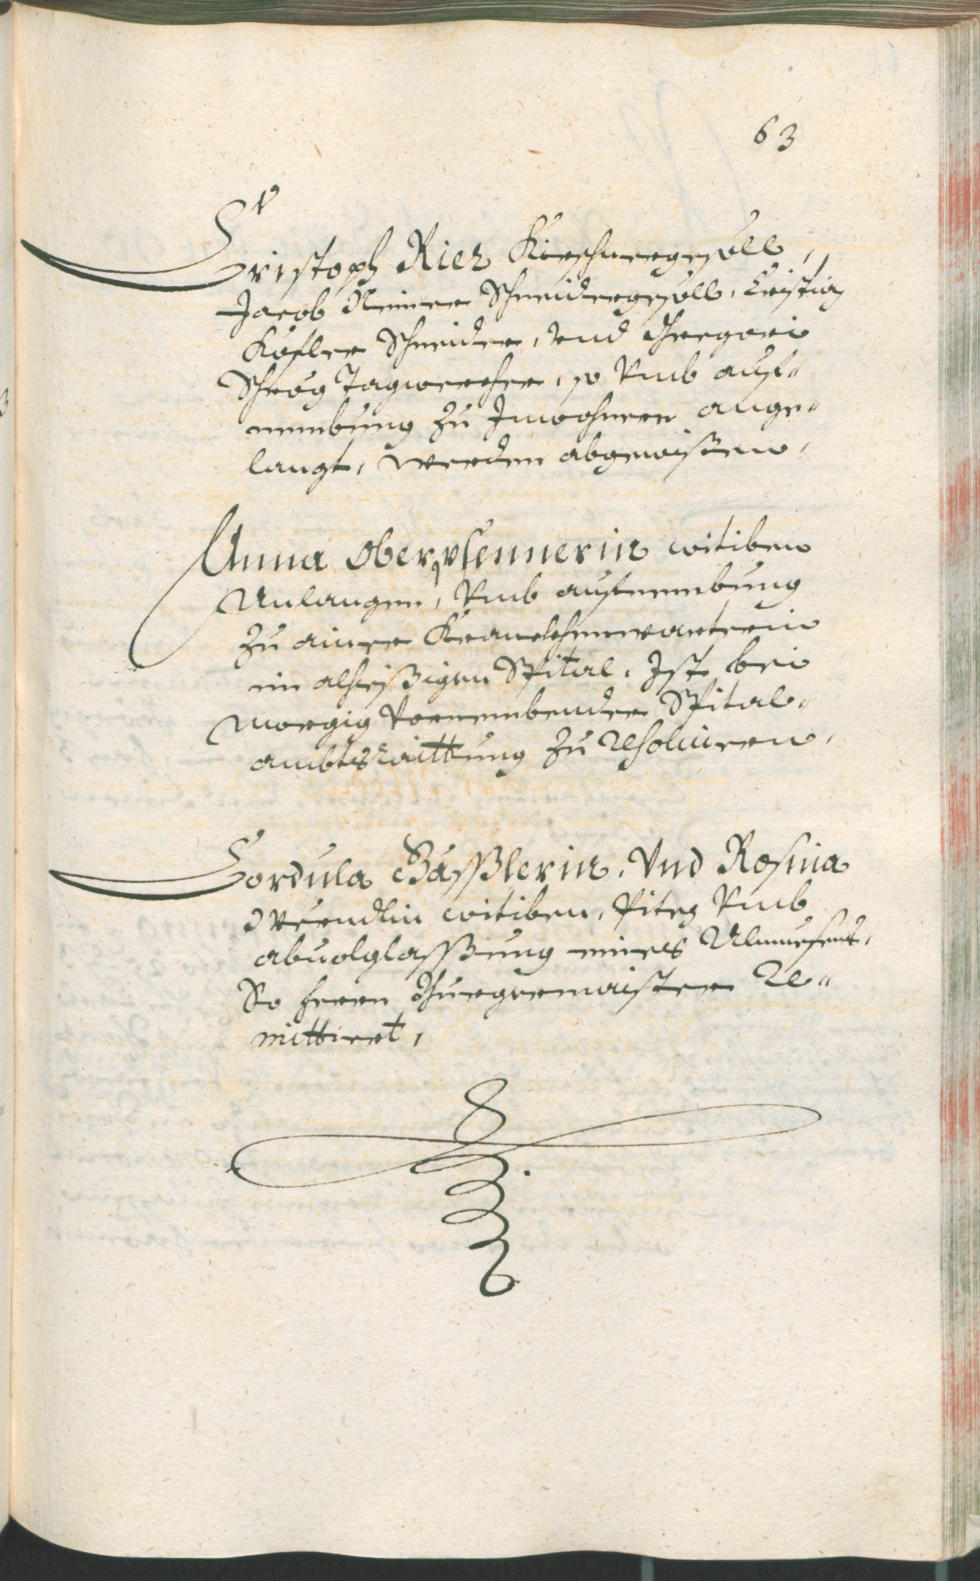 63
Cristoph Riez Kirschnergesöll,
Jacob Steiner Schneidergesöll, Cristian
Kofler Schneider, vnd Gregori
Schrög Tagwercher, so vmb auf-
nembung zu Inwohnern ange-
langt, werden abgewißen,
Anna Oberpstennerin witiben
Anlangen, vmb aufnembung
zu ainer Kranckhenwarterin
im alhießigen Spital. Ist bei
morgig vornembender Spital-
ambtsraittung zu resoluieren,
Cordula Gässlerin, Vnd Rosina
witiben, Piten vmb
abuolglassung eines Almuesens,
So herrn Burgermaister Re-
mittiert,